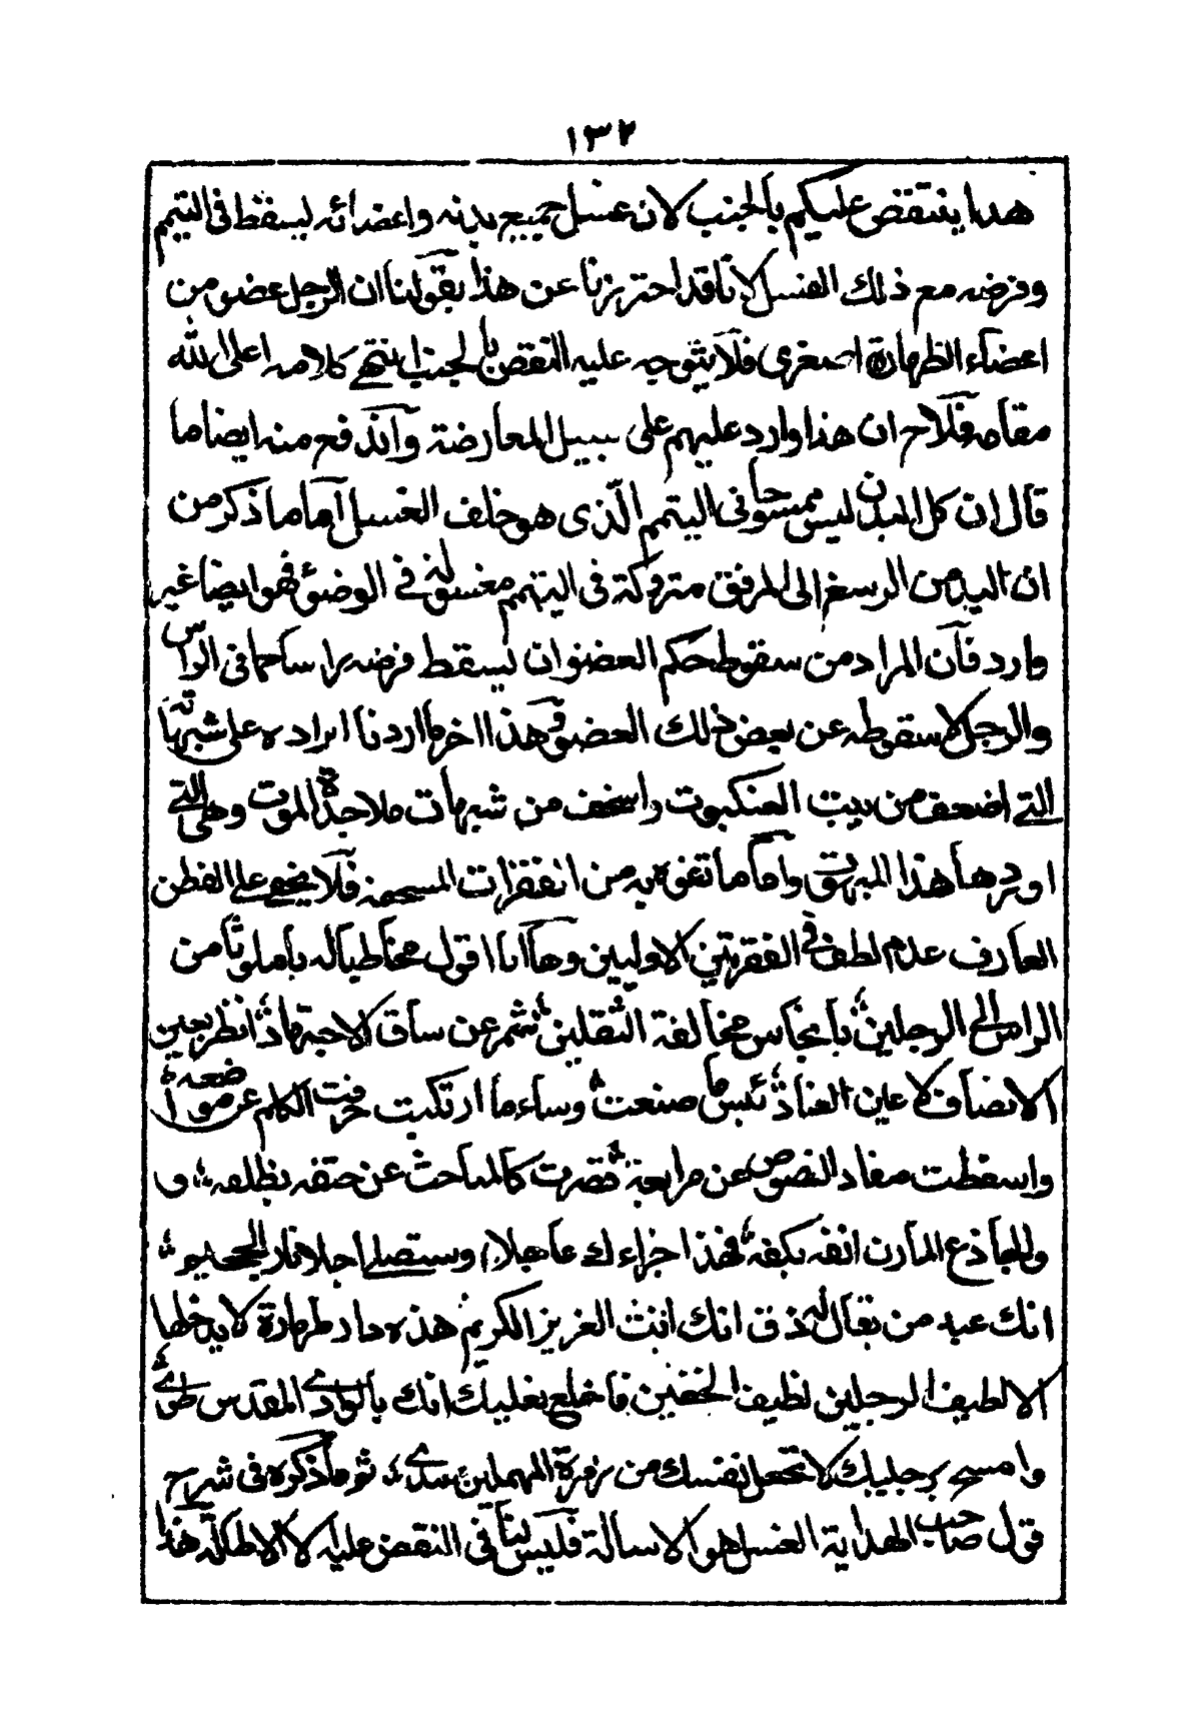 ١٣٢
هذا ينتقض عليكم بالجنب لان غسل جميع بدنه واعضائه يسقط فى التيمم
وفرضه مع ذلك الغسل لانا قد احترزنا عن هذا بقولنا ان الرجل عضو من
اعضاء الطهارة الصغرى فلا يتوجه عليه النقض بالجنب انتهى كلامه اعلى الله
مقامه فلاح ان هذا وارد عليهم على سبيل المعارضة واندفع منه ايضا ما
قال ان كل البدن ليس ممسوحا فى التيمم الذى هو خلف الغسل اما ما ذكر من
ان اليد من الرسغ الى المرفق متروكة فى التيمم مغسولة فى الوضوء فهو ايضا غير
وارد فان المراد من سقوط حكم العضو ان يسقط فرضه براسا كما فى الراس
والرجل لا سقوطه عن بعض ذلك العضو فهذا اخر ما اردنا ايراده على شبهاته
التى اضعف من بيت العنكبوت واسخف من شبهات ملاحدة الموت وهى التى
اوردها هذا المبهوت واما ما تفوه به من الفقرات المسجعة فلا يخفى على الفطن
العارف عدم لطف فى الفقرتين الاوليين وها انا اقول مخاطبا له يا ملوثا من
الراس الى الرجلين بانجاس مخالفة الثقلين شمر عن ساق الاجتهاد انظر بعين
الانصاف لا عين العناد بئس ما صنعت وساء ما ارتكبت حرفت الكلم عن مواضعه
واسقطت مفاد النصوص عن مرابعه فصرت كالباحث عن حتفه بظلفه و
والجاذع مارن انفه بكفه فهذا جزاءك عاجلا وستصلى اجلا نار الجحيم
انك عبد من يقال له ذق انك انت العزيز الكريم هذه دار طهارة لا يدخلها
الا لطيف الرجلين نظيف الخفين فاخلع نعليك انك بالوادى المقدس طوى
وامسح برجليك لا تجعل نفسك من زمرة المهملين سدى ثم ما ذكره فى شرح
قول صاحب الهداية الغسل هو الاسالة فليس لنا فى النقض عليه الا الاطالة هذا